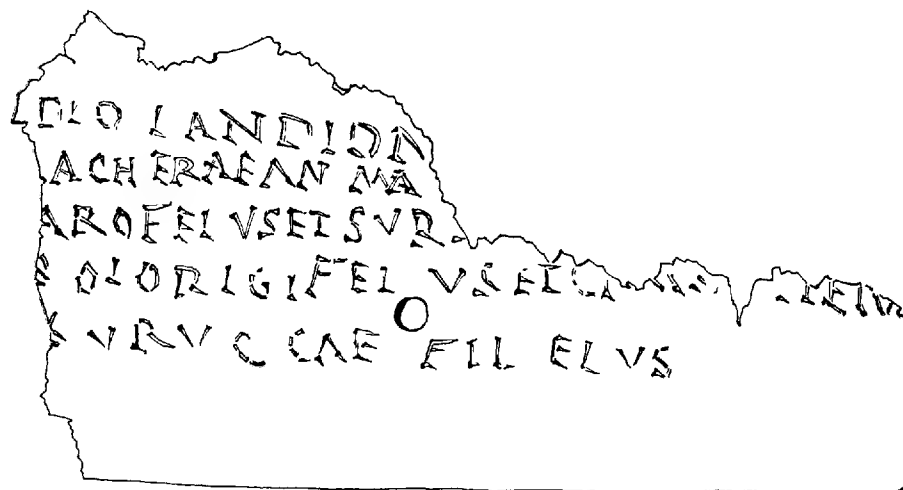 DLOLANDIDN
ACHERAEANMA
AROFELVSETSVR
SOLORIGIFEL VSETC
SVRVCCAE FILELVS